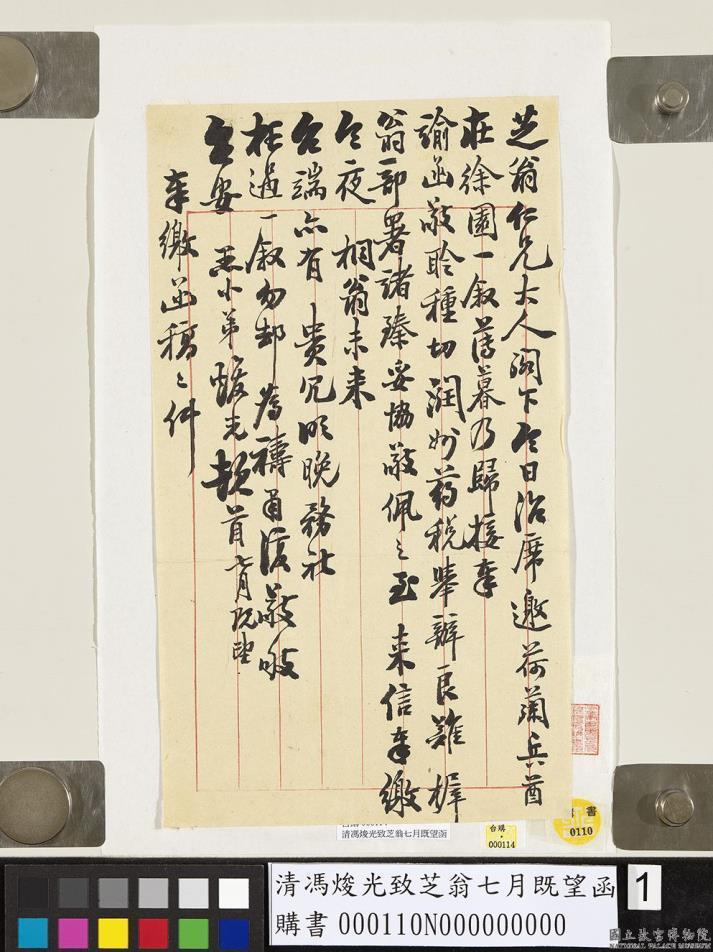 芝翁仁兄大人閣下今日治席邀荷蘭兵酋
在徐園一叙薄暮乃歸接奉
諭函敬聆種切潤州药税舉辦良難樨
翁一部署諸臻妥協敬佩之至来信奉繳
今夜桐翁未来
台端亦有貴冗明晚務祉
枉過一叙勿却為禱肅复敬頌
台安 愚小弟焌光頓首七月既望
奉繳函稿二件
清馮焌光致芝翁七月既望函
台購
000114
書
0110
清馮焌光致芝翁七月既望函
購書 000110N000000000
1
國立故宮博物院
NATIONAL PALACE MUSEUM